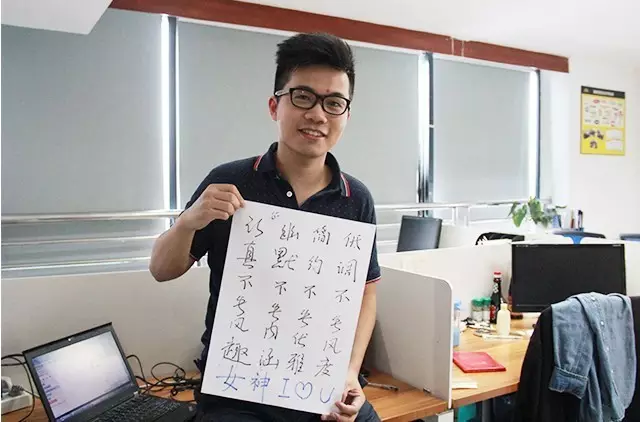 低调不失风度
简约不失优雅
幽默不失内涵
认真不失风趣
女神 I♡U